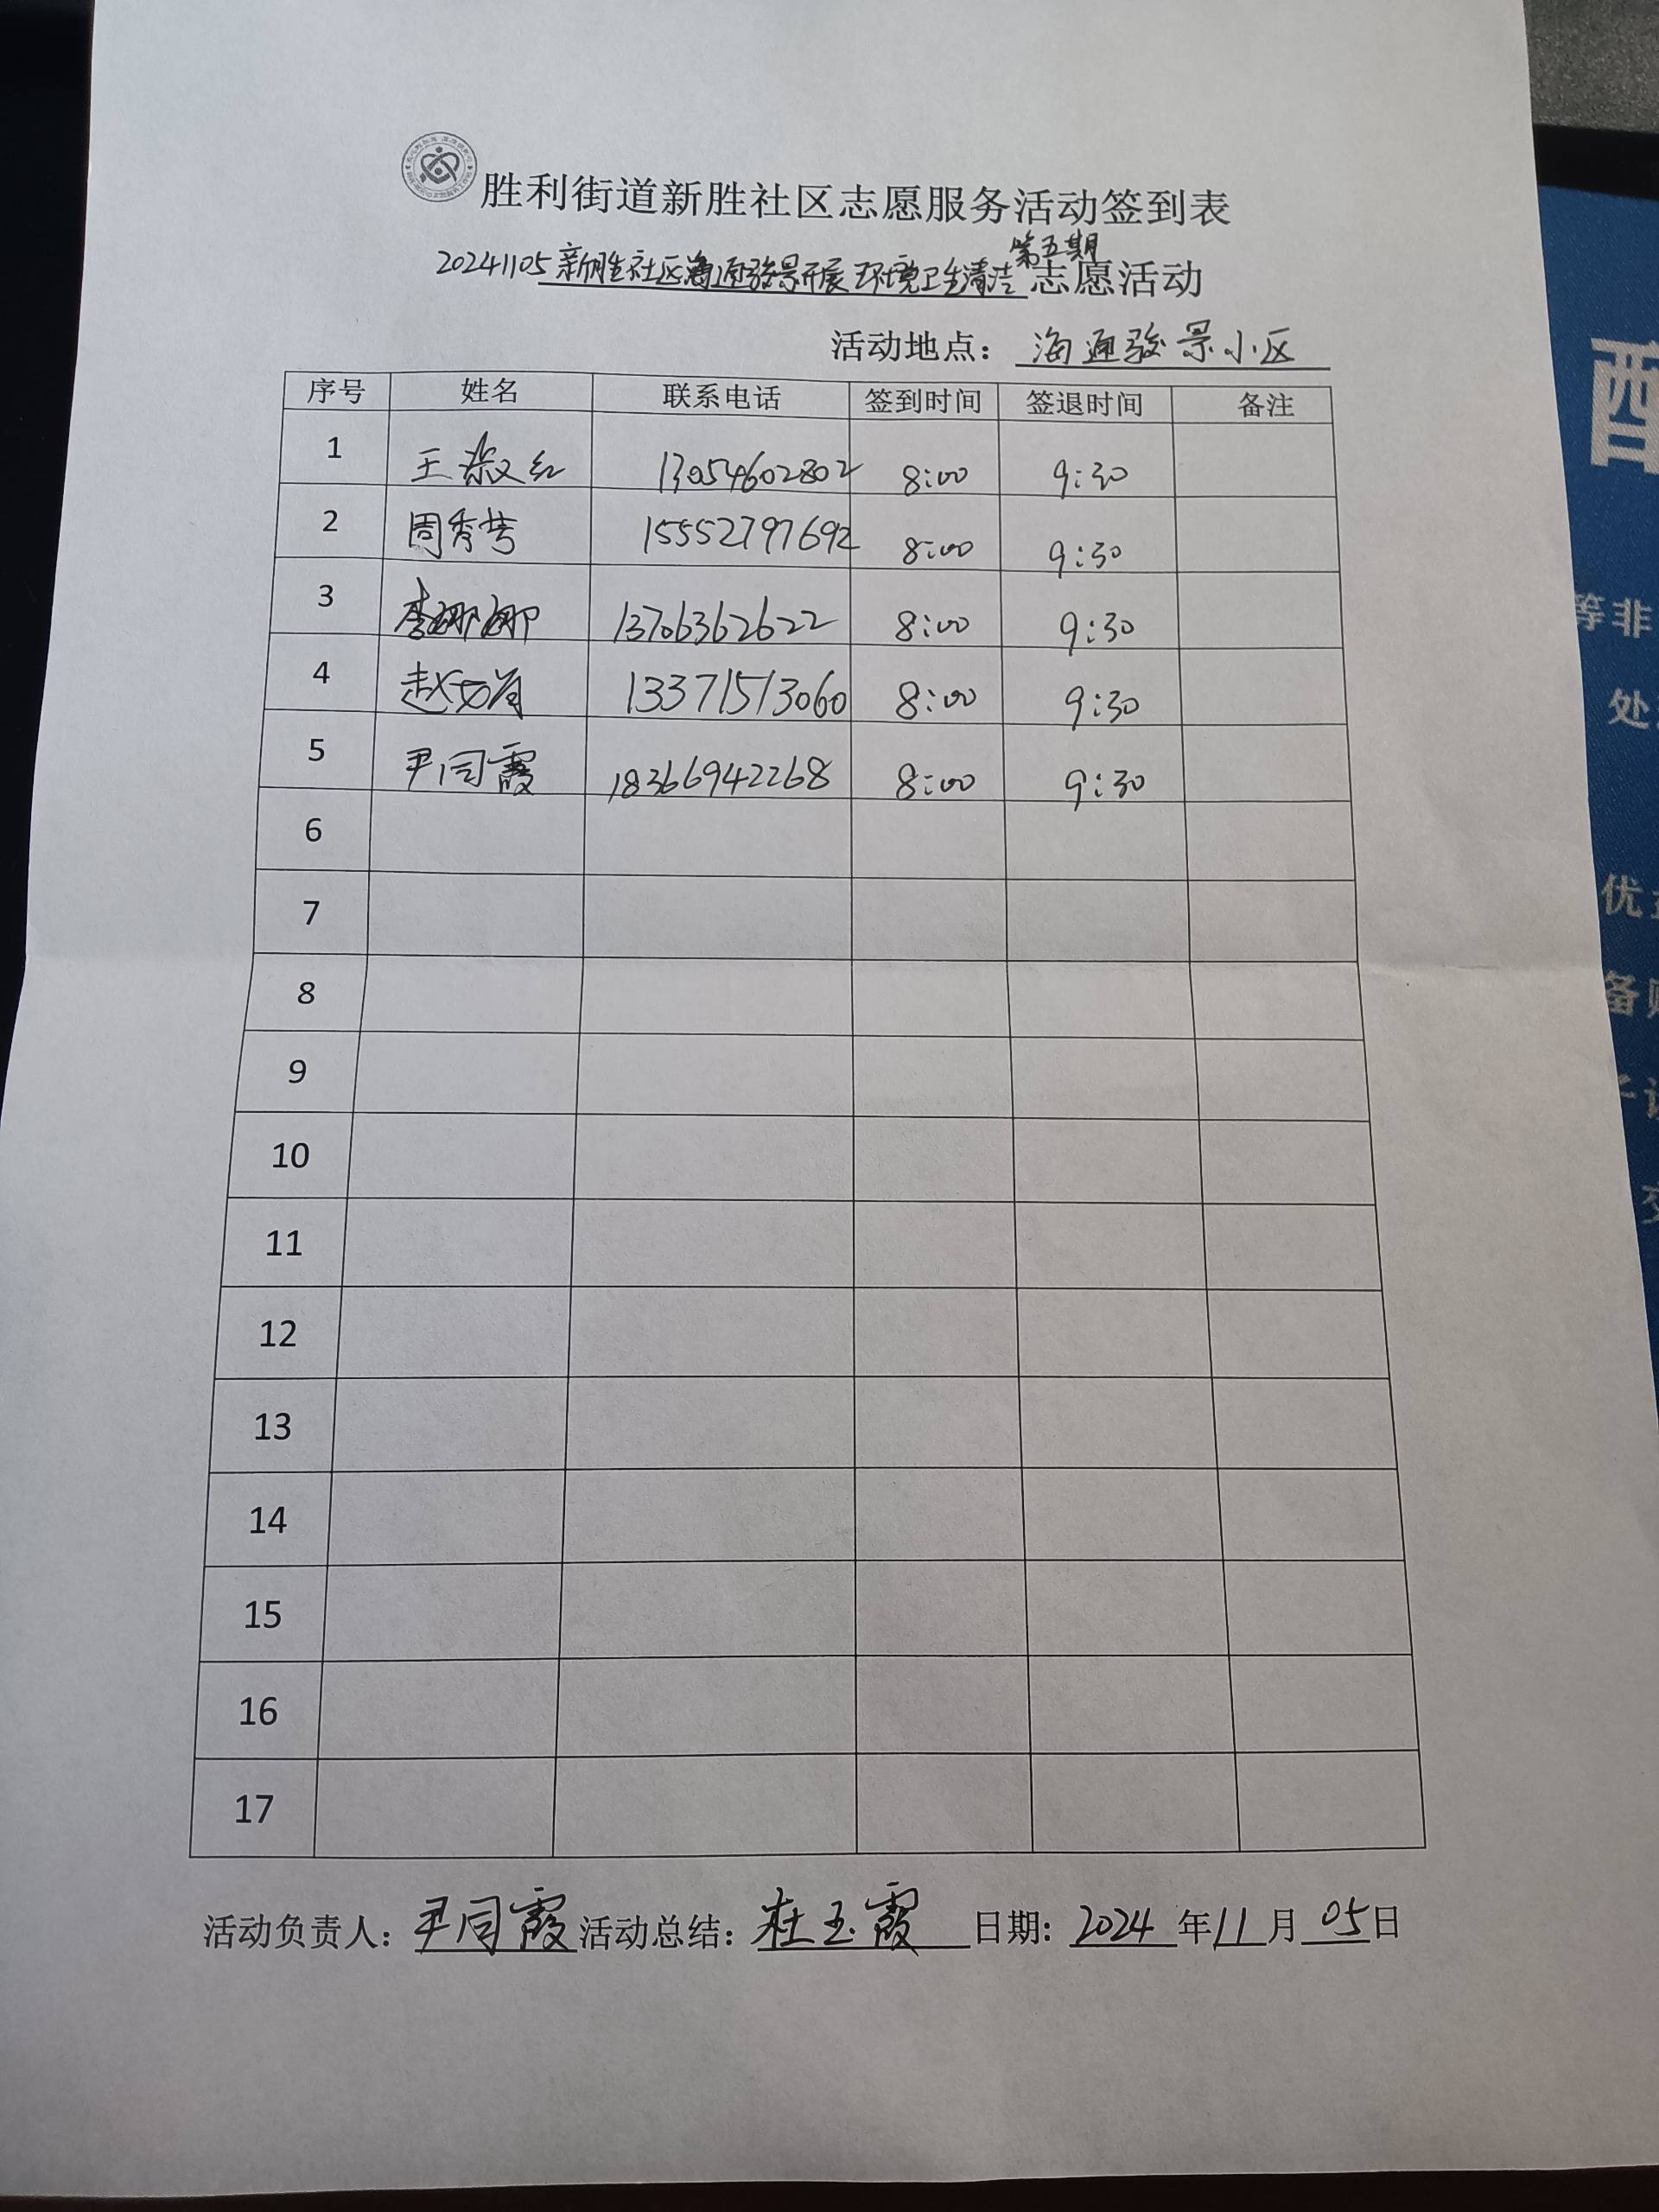 胜利街道新胜社区志愿服务活动签到表
第五期
20241105新胜社区海通骏景开展环境卫生清洁志愿活动
活动地点：海通骏景小区
序号 姓名 联系电话 签到时间 签退时间 备注
1 王淑红 13054602802 8:00 9:30
2 周秀芳 15552797692 8:00 9:30
3 李娜娜 13706362622 8:00 9:30
4 赵 13371513060 8:00 9:30
5 尹同霞 18366942268 8:00 9:30
6
7
8
9
10
11
12
13
14
15
16
17
活动负责人：尹同霞 活动总结：杜玉霞 日期：2024年11月05日
等非
处
优
备